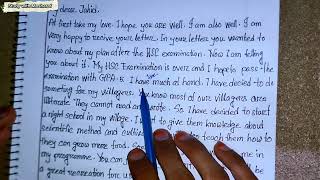 dear Jahid,
At first take my love. I hope you are well. I am also well. I am
very happy to receive your letter. In your letter you wanted to
know about my plan after the HSC examination. Now I am telling
you about it. My HSC Examination is over and I hope to pass the
examination with GPA-5. I have much at hand. I have decided to do
something for my villagers. You know most of our villagers are
illiterate. They cannot read and write. So I have decided to start
a night school in my village. I want to give them knowledge about
scientific method and cultiv teach them how to
they can grow more food. Som me in
my programme. You can be
a great recreation for us